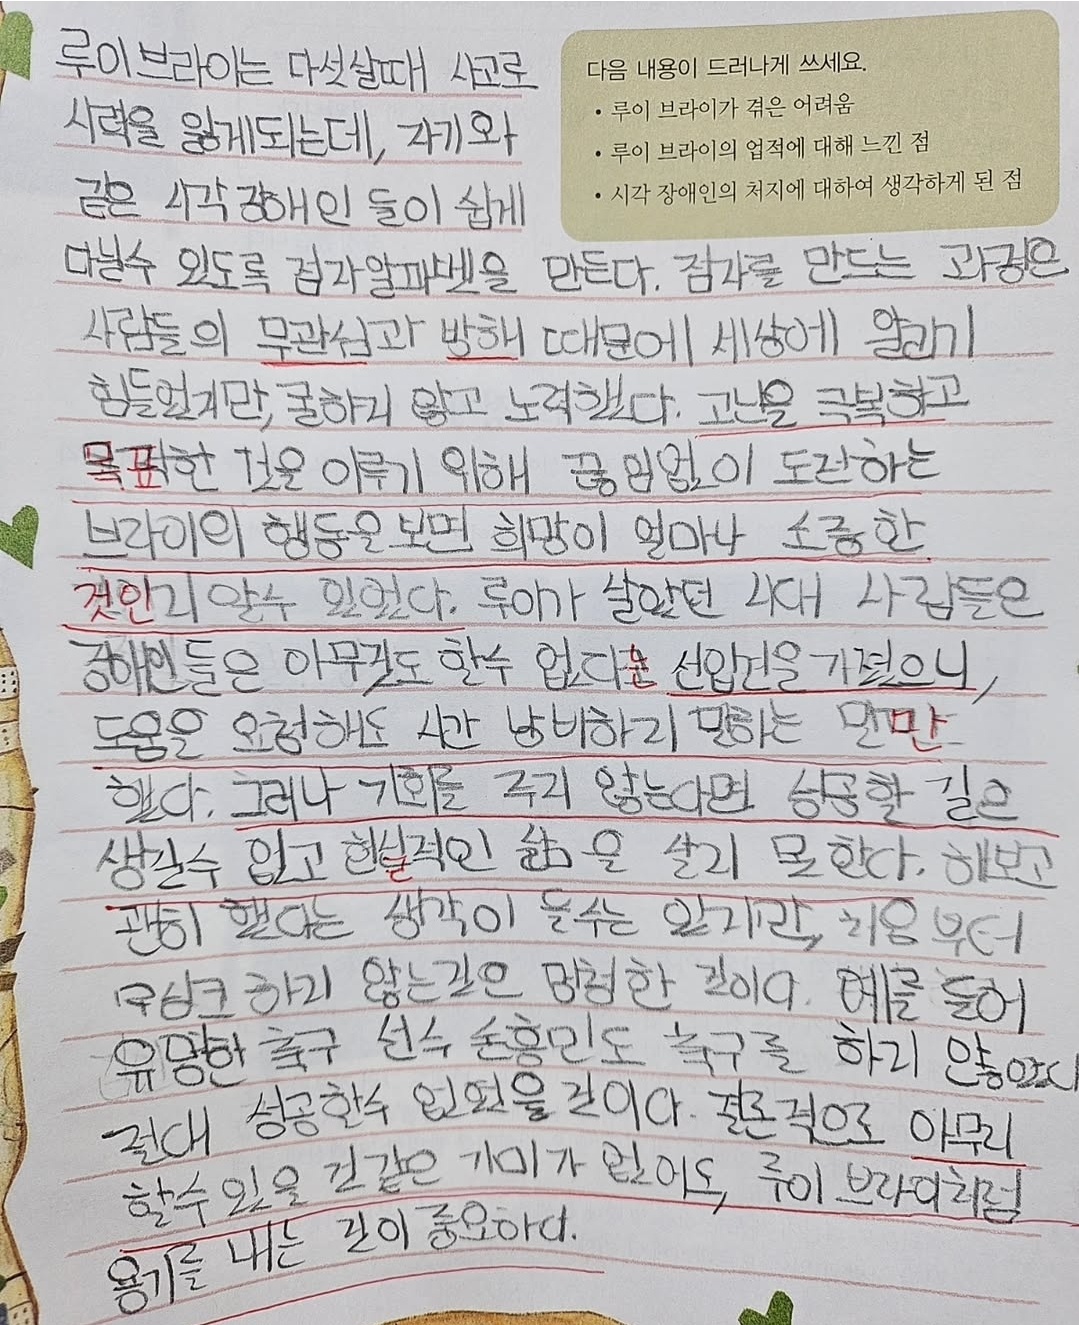 루이브라이는 다섯살때 사고로
다음 내용이 드러나게 쓰세요.
• 루이 브라이가 겪은 어려움
• 루이 브라이의 업적에 대해 느낀 점
• 시각 장애인의 처지에 대하여 생각하게 된 점
시력을 잃게되는데, 자기와
같은 시각장애인 들이 쉽게
다닐수 있도록 점자알파벳을 만든다. 점자를 만드는 과정은
사람들의 무관심과 방해 때문에 세상에 알리기
힘들었지만, 굴하지 않고 노력했다. 고난을 극복하고
목표한 것을 이루기 위해 끊임없이 도전하는
브라이의 행동을보면 희망이 얼마나 소중한
것인지 알수 있었다. 루이가 살았던 시대 사람들은
장애인들은 아무것도 할수 없다는 선입견을 가졌으니,
도움을 요청해도 시간 낭비하지 말라는 말만
했다. 그러나 기회를 주지 않는다면 성공할 길은
생길수 없고 현실적인 삶을 살지 못한다. 해보고
괜히 했다는 생각이 들수는 있지만, 처음부터
하지 않는것은 멍청한 것이다. 예를 들어
유명한 축구 선수 손흥민도 축구를 하지 않았다
절대 성공할수 없었을것이다. 결론적으로 아무리
할수 있을 것 같은 가 없어도, 루이 브라이처럼
용기를 내는 것이 중요하다.